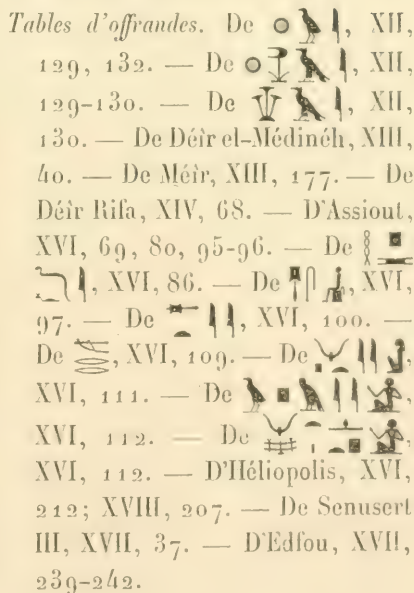 Tables d'offrandes. De , XII,
129, 132. — De , XII,
129-130. — De , XII,
130. — De Déîr el-Médinéh, XIII,
40. — De Méîr, XIII, 177. — De
Déîr Rifa, XIV, 68. — D'Assiout,
XVI, 69, 80, 95-96. — De
, XVI, 86. — De , XVI,
97. — De , XVI, 100. —
De , XVI, 109. — De ,
XVI, 111. — De ,
XVI, 112. — De ,
XVI, 112. — D'Héliopolis, XVI,
212; XVIII, 207. — De Senusert
III, XVII, 37. — D'Edfou, XVII,
239-242.